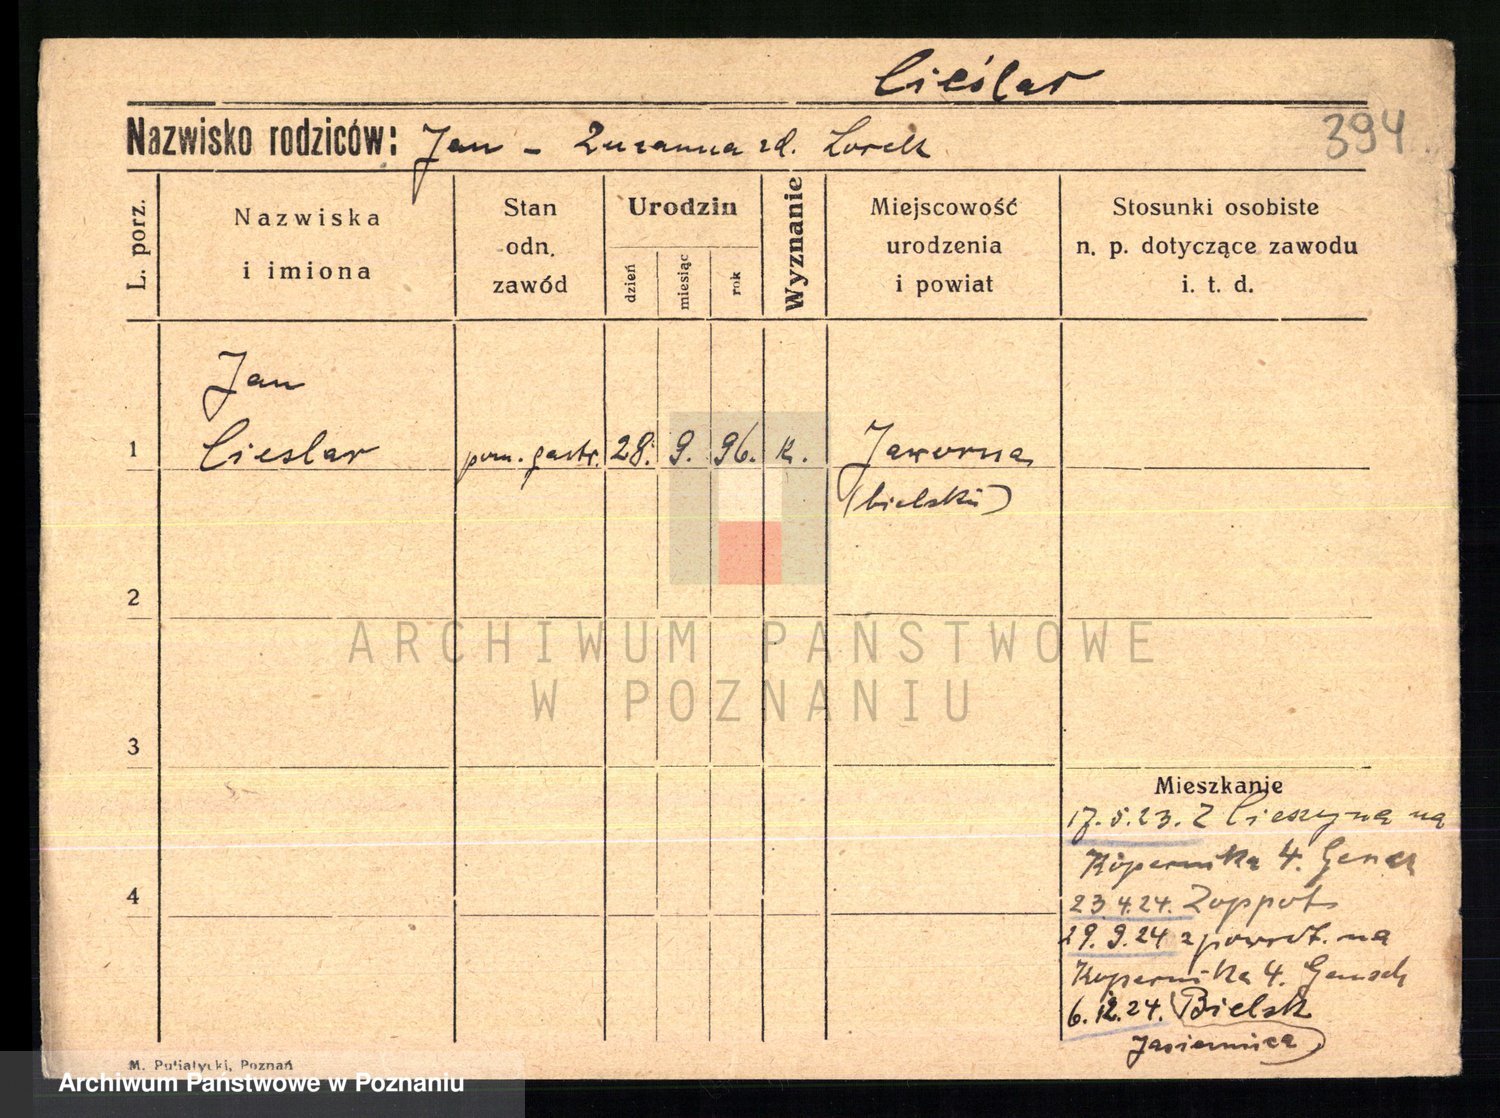 Cieślar
Nazwisko rodziców: Jan - Zuzanna zd. Lorek
394
L. porz.
Nazwiska
i imiona
Stan
odn.
zawód
Urodzin
dzień
miesiąc
rok
Wyznanie
Miejscowość
urodzenia
i powiat
Stosunki osobiste
n. p. dotyczące zawodu
i. t. d.
Jan
1 Cieslar pom. gastr. 28. 9. 96. k. Jaworna
(bielski)
2
ARCHIWUM PAŃSTWOWE
W POZNANIU
3
Mieszkanie
17.5.23. Z Cieszyna na
Kopernika 4.
4
23.4.24. Zoppot
29.9.24 z powrot. na
Kopernika 4.
6.12.24. Bielsk
Jasiennica)
M. Putiatycki, Poznań
Archiwum Państwowe w Poznaniu